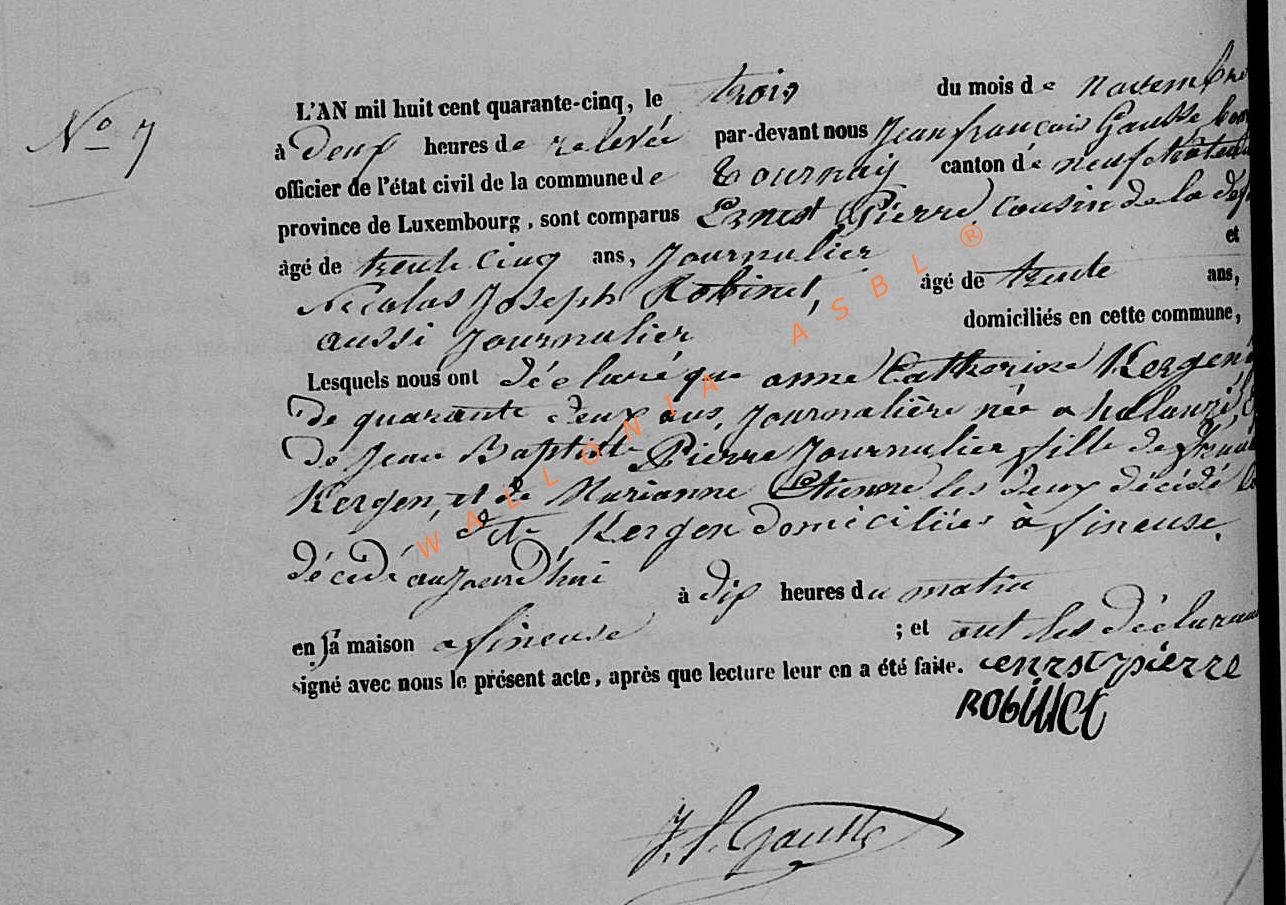 No 7
L'AN mil huit cent quarante-cinq, le trois du mois de novembre
à deux heures de relevée par-devant nous Jean françois Gausse
officier de l'état civil de la commune de Tournay canton de neufchâteau
province de Luxembourg, sont comparus Ernest Pierre, cousin de la
âgé de trente cinq ans, Journalier et
Nicolas Joseph Robinet, âgé de trente ans,
aussi Journalier domiciliés en cette commune,
Lesquels nous ont déclaré que anne Catherine Kergen,
de quarante deux ans, Journalière née a
de Jean Baptiste Pierre Journalier fille de
Kergen, et de Marianne Etienne les deux décédé
dite Kergen domiciliée à fineuse.
décédé aujourd'hui à dix heures du matin
en sa maison a fineuse ; et ont les
signé avec nous le présent acte, après que lecture leur en a été faite. enrst pierre
ROBINET
J. f. Gausse
WALLONIA ASBL ®